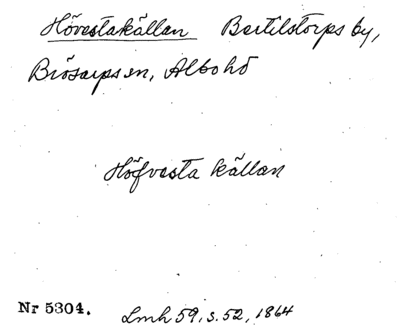 Hövestakällan Bertilstorps by,
Brösarps sn, Albo hd
Höfvesta källan
Nr 5304. Lmh 59, s. 52, 1864